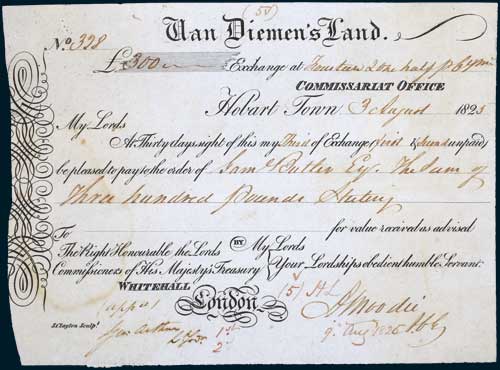 (50)
Van Diemen's Land.
No. 328
£300 Exchange at Fourteen & one half p Ct pm
COMMISSARIAT OFFICE
Hobart Town 3 August 1825
My Lords
At Thirty days sight of this my Third of Exchange (First & Second unpaid)
be pleased to pay to the order of Saml Butler Esq. The Sum of
Three hundred Pounds Sterling
for value received as advised
To
The Right Honourable the Lords BY My Lords
Commissioners of His Majesty's Treasury Your Lordships obedient humble Servant.
WHITEHALL
London
(5)
(appd)
Geo Arthur
Lt Govr
1st
2d
A Moodie
9 Aug 1825